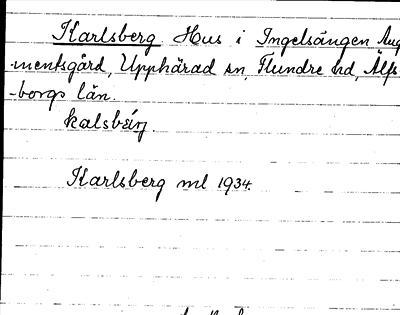 Karlsberg Hus i Ingelsången Aug
-mentsgård, Upphärad sn, Flundre hd, Älfs
-borgs län.
kalsbärj
Karlsberg ml 1934.